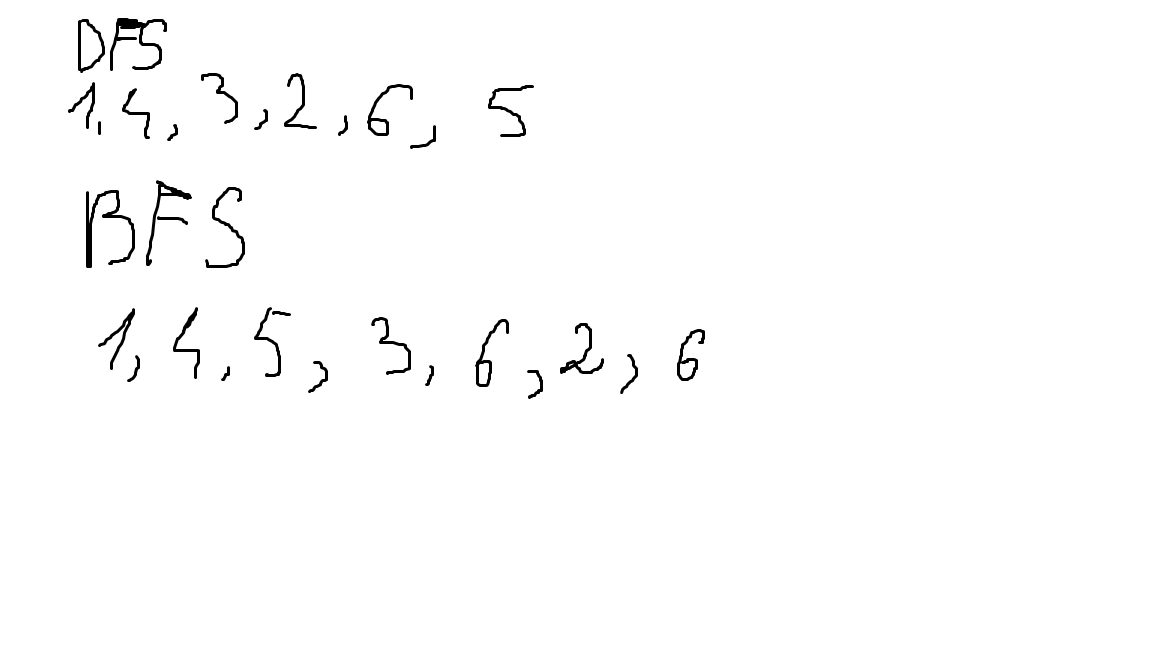 DFS
1, 4, 3, 2, 6, 5
BFS
1, 4, 5, 3, 6, 2, 6